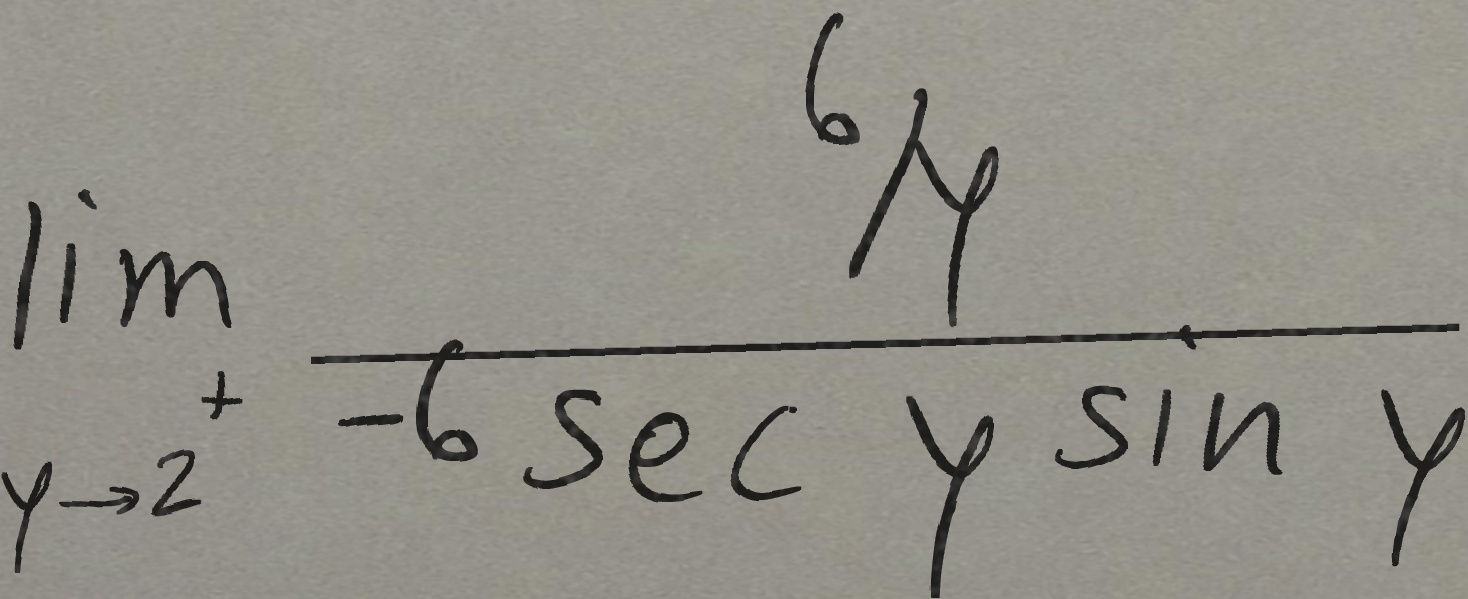 lim y→2⁺ (6/y)/(-6 sec y sin y)